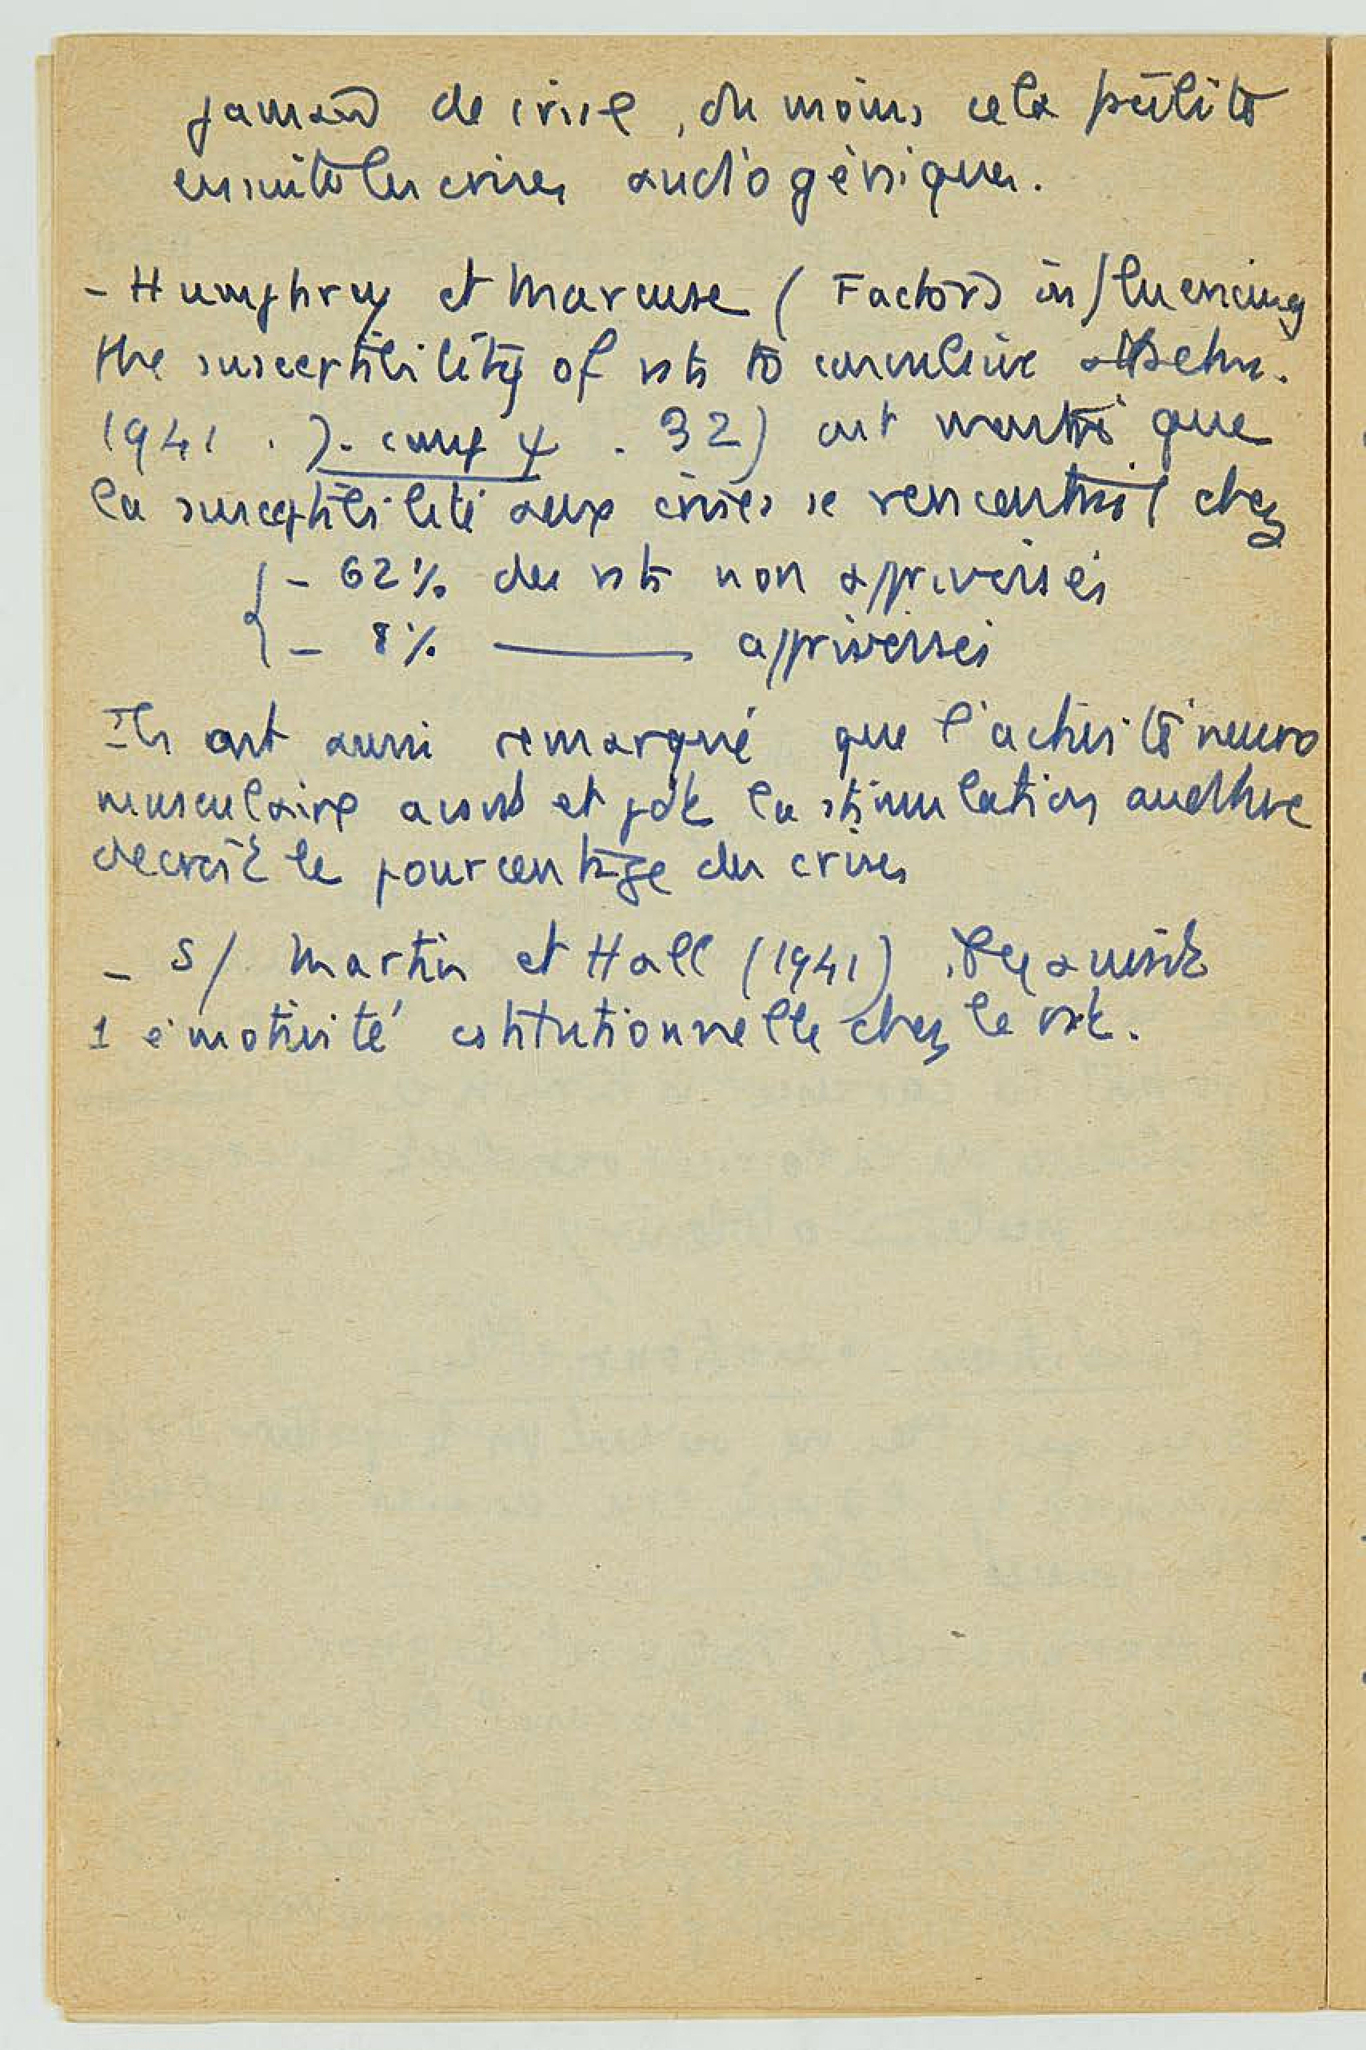 jamais de crise, du moins cela facilite
ensuite les crises audiogéniques.
- Humphrey et Marcuse (Factors influencing
the susceptibility of rats to convulsive attacks.
1941. J. comp ψ. 32) ont montré que
la susceptibilité aux crises se rencontrait chez
- 62% des rats non apprivoisés
- 8% ——— apprivoisés
Ils ont aussi remarqué que l'activité neuro
musculaire avant et pdt la stimulation auditive
décroit le pourcentage des crises
- S/ Martin et Hall (1941), il y aurait
1 émotivité cstitutionnelle chez le rat.